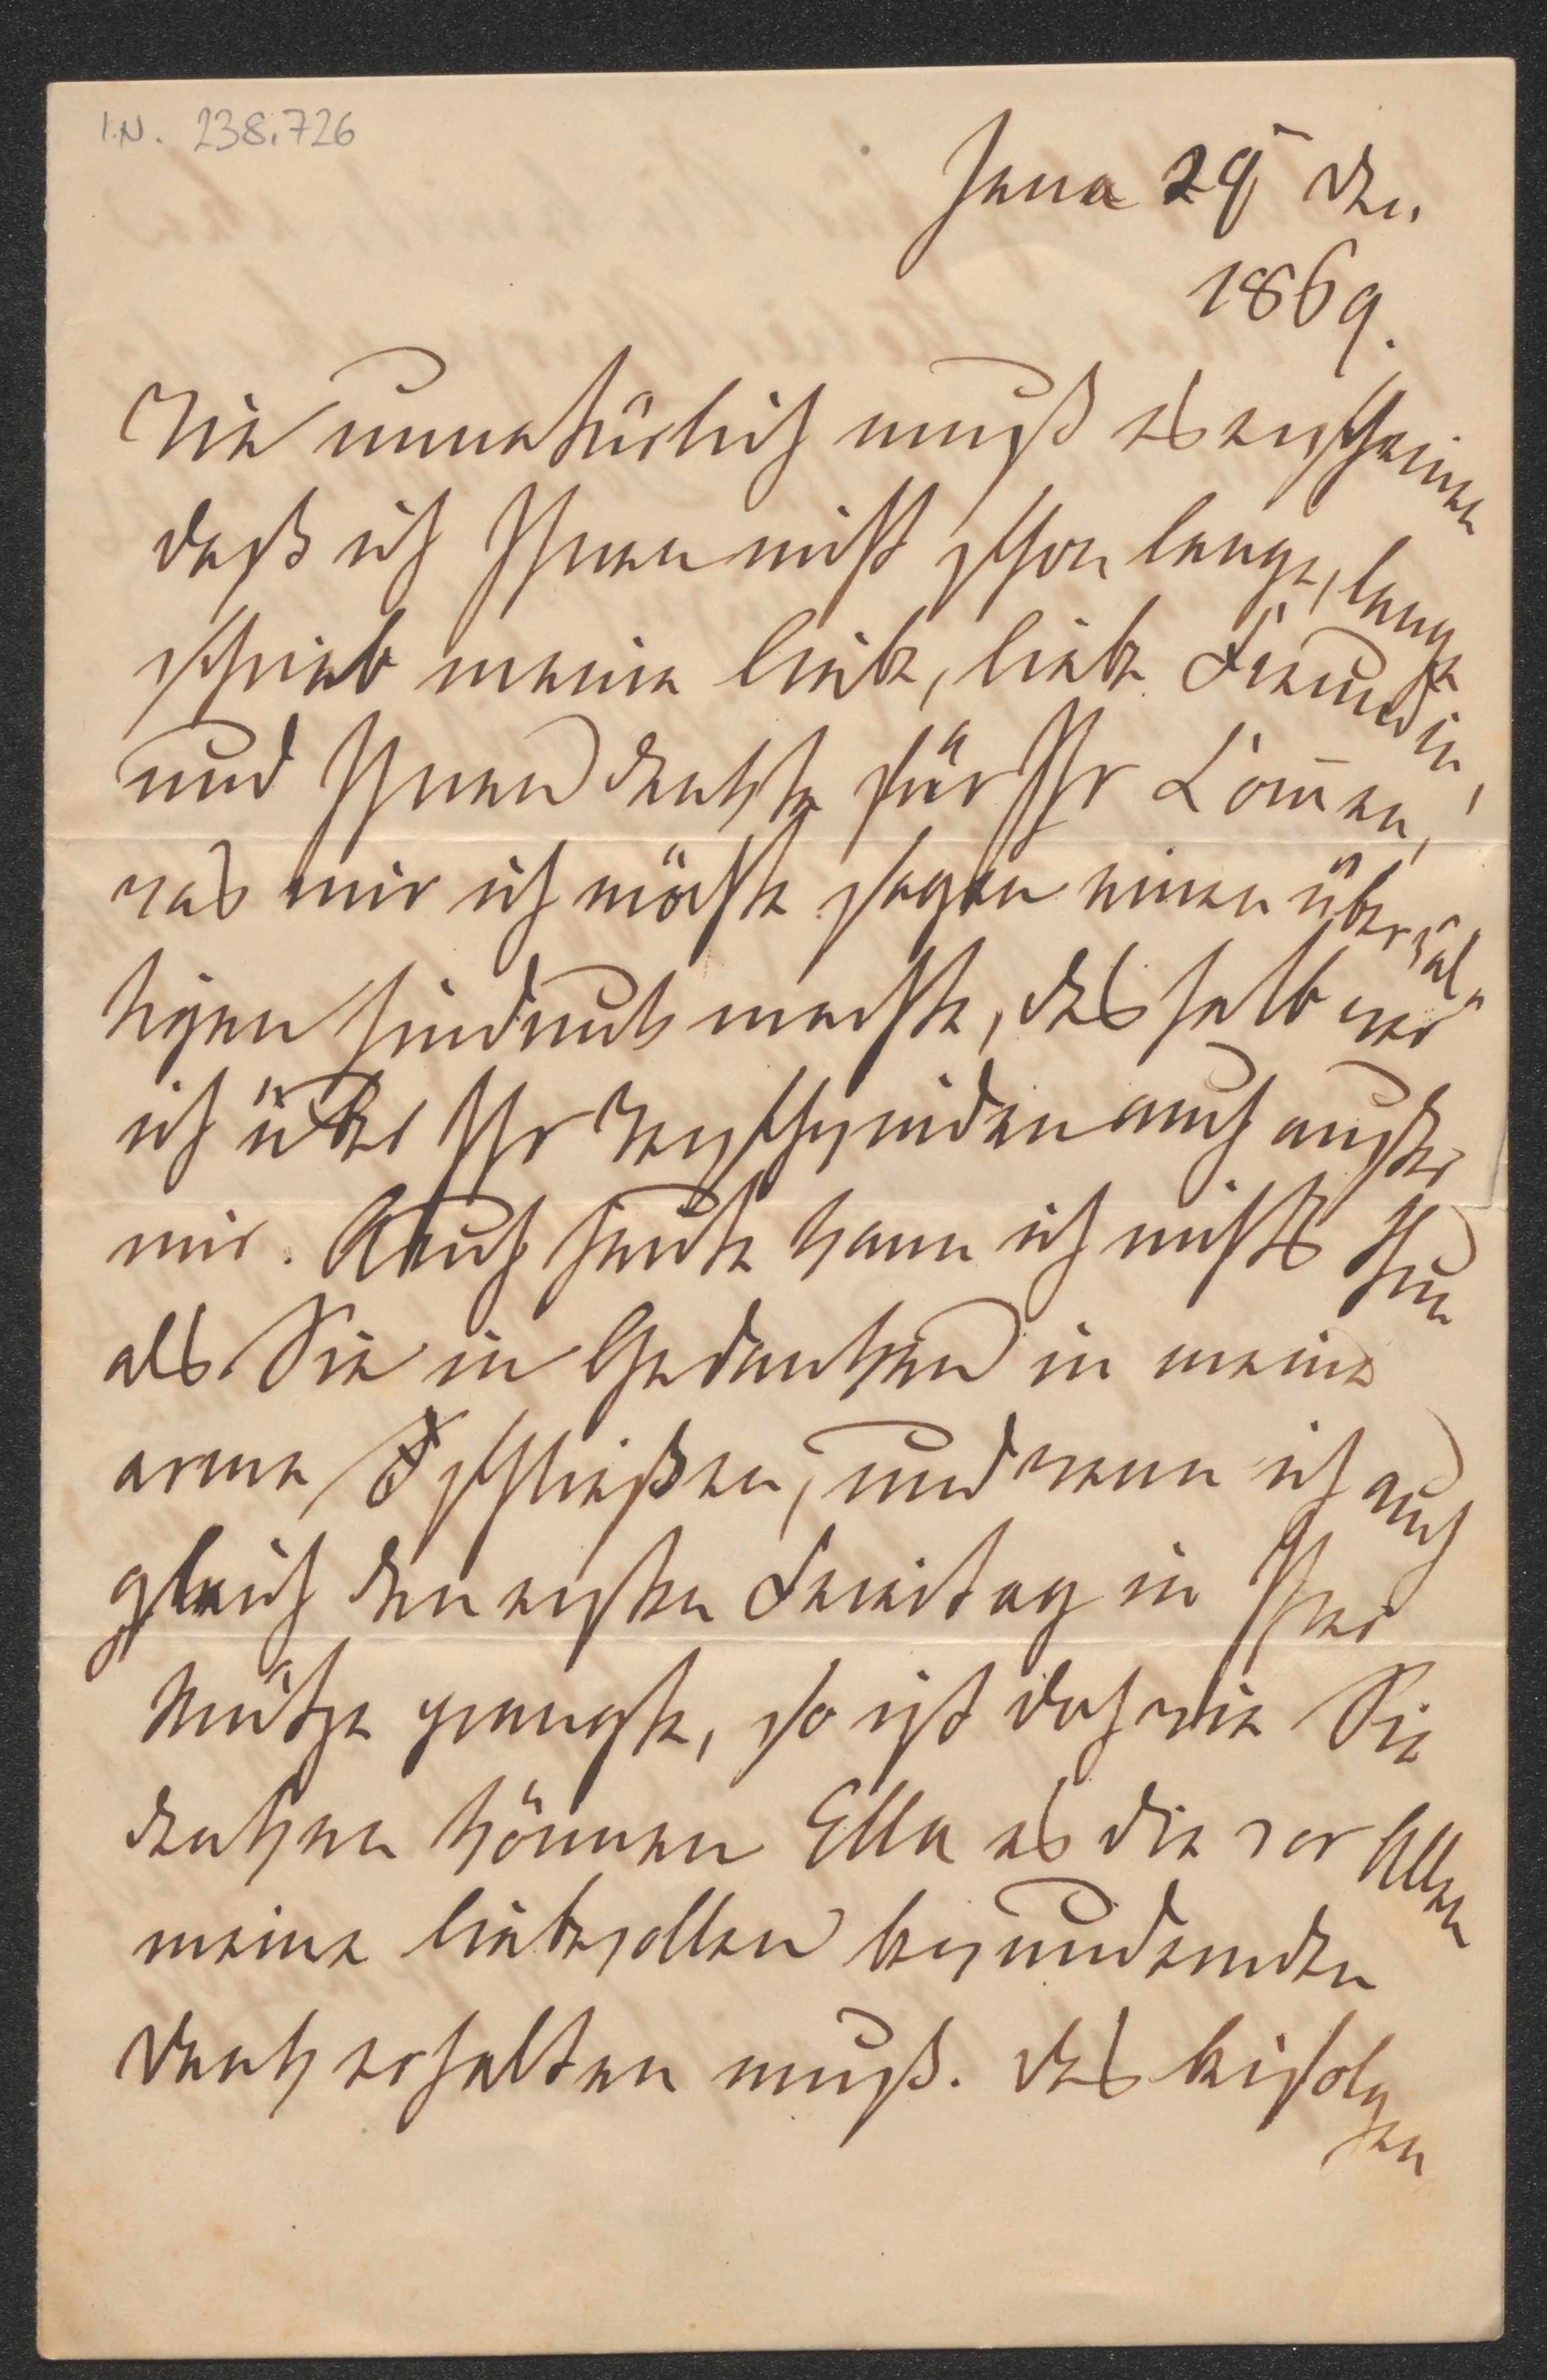 I.N. 238.726
Jena 29 Dez.
1869.
Wie unnatürlich muß es erscheinen
daß ich Ihnen nicht schon lange, lange
schrieb meine liebe, liebe Freundin,
und Ihnen dankte für Ihr Kom̄en,
was mir ich möchte sagen einen überwäl-
tigen Eindruck machte, deshalb war
ich über Ihr Verschwinden auch außer
mir. Auch heute kann ich nichts thun
als Sie in Gedanken in meine
arme schließen, und wenn ich auch
gleich den ersten Feiertag in Ihrer
Mütze prangte, so ist doch wie Sie
denken können Ella es die vor Allen
meine liebevollen bewundernden
Dank erhalten muß. Das beifolgen